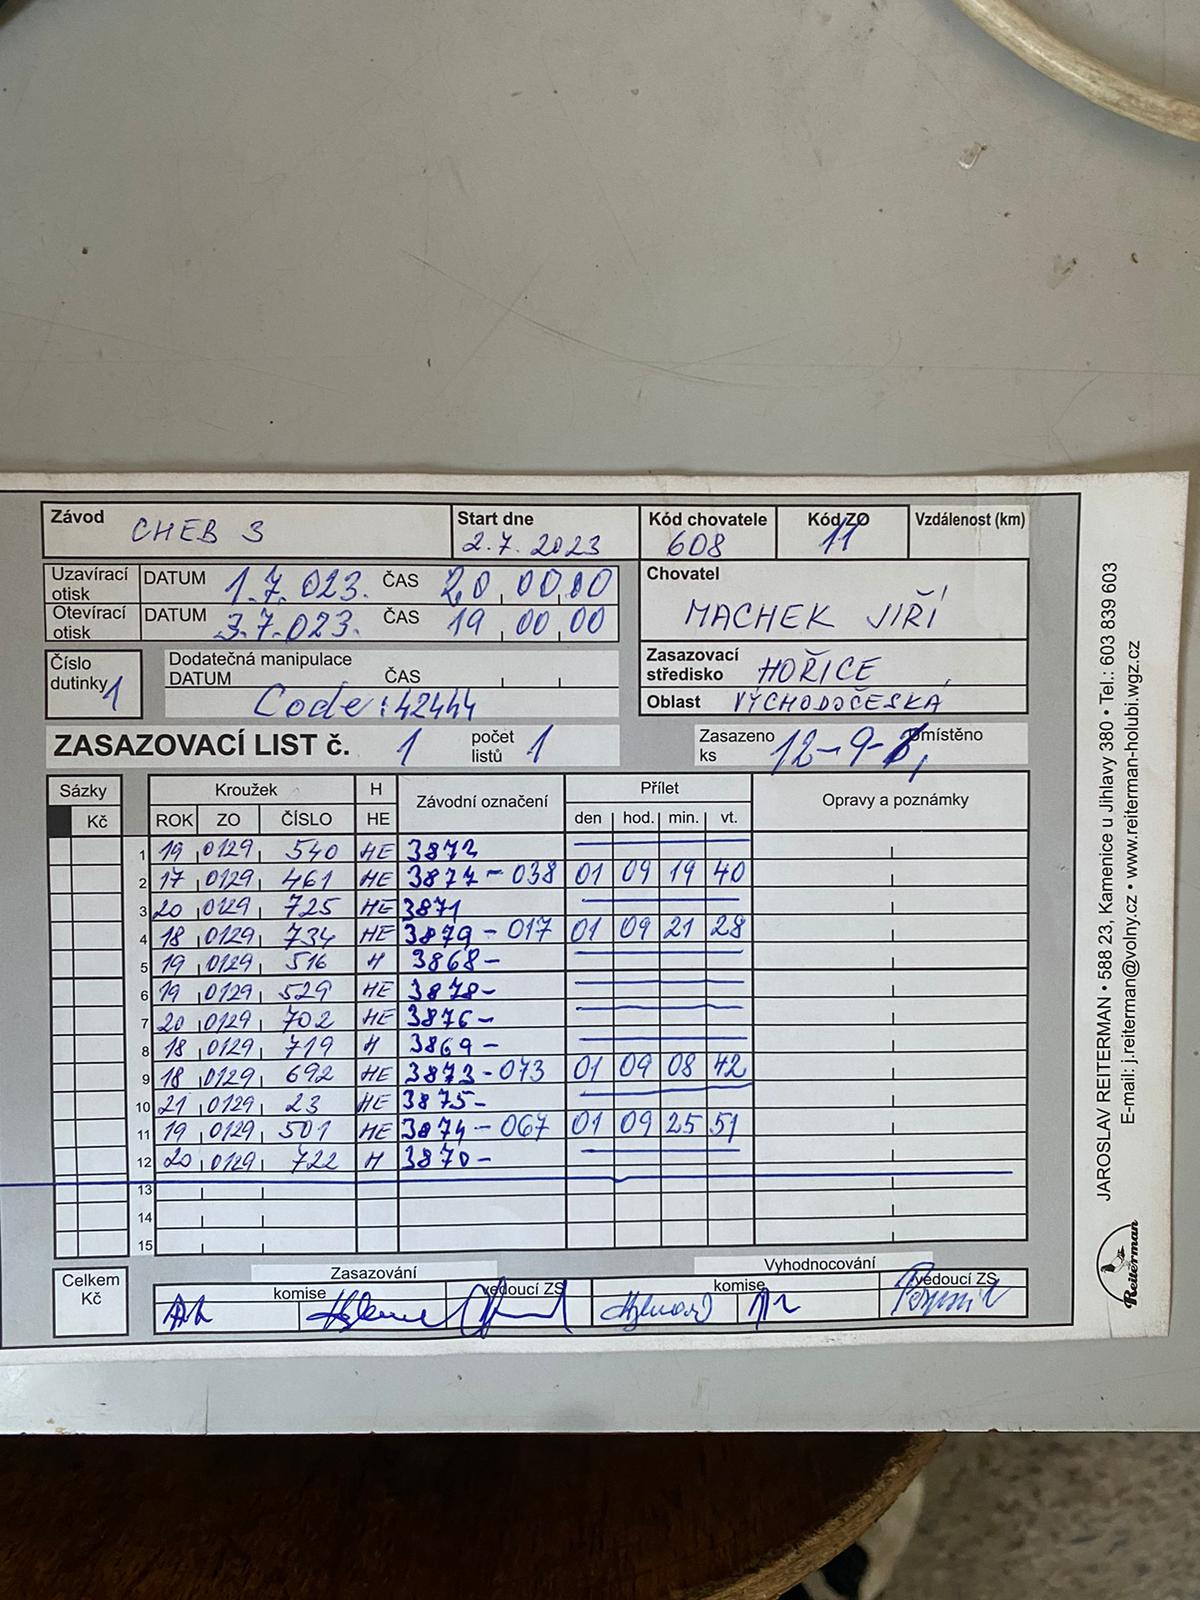 Závod CHEB 3 Start dne 2.7.2023 Kód chovatele 608 Kód ZO 11 Vzdálenost (km)
Uzavírací otisk DATUM 1.7.023. ČAS 20,00,00
Otevírací otisk DATUM 3.7.023. ČAS 19,00,00
Chovatel MACHEK JIŘÍ
Číslo dutinky 1 Dodatečná manipulace
DATUM ČAS
Code: 42444
Zasazovací středisko HOŘICE
Oblast VÝCHODOČESKÁ
ZASAZOVACÍ LIST č. 1 počet listů 1 Zasazeno ks 12-9- místěno
Sázky Kroužek H Závodní označení Přílet Opravy a poznámky
Kč ROK ZO ČÍSLO HE den hod. min. vt.
1 19 0129 540 HE 3872
2 17 0129 461 HE 3877-038 01 09 19 40
3 20 0129 725 HE 3871
4 18 0129 734 HE 3879-017 01 09 21 28
5 19 0129 516 H 3868-
6 19 0129 529 HE 3878-
7 20 0129 702 HE 3876-
8 18 0129 719 H 3869-
9 18 0129 692 HE 3873-073 01 09 08 42
10 21 0129 23 HE 3875-
11 19 0129 501 HE 3874-067 01 09 25 51
12 20 0129 722 H 3870-
13
14
15
Celkem Kč
Zasazování Vyhodnocování
komise vedoucí ZS komise vedoucí ZS
JAROSLAV REITERMAN • 588 23, Kamenice u Jihlavy 380 • Tel.: 603 839 603
E-mail: j.reiterman@volny.cz • www.reiterman-holubi.wgz.cz
Reiterman